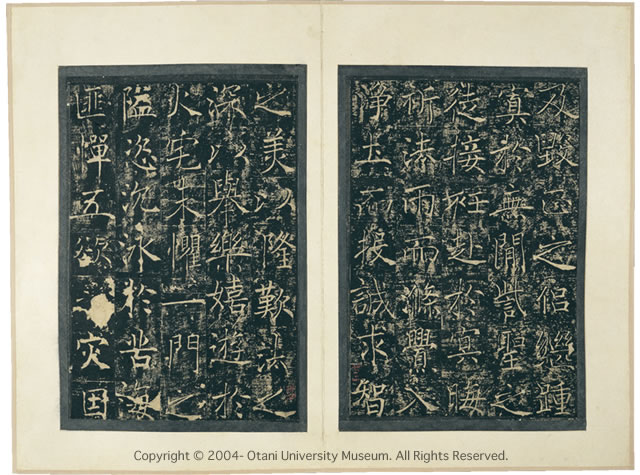 及跂正之侶繼踵
真於無聞凱聖之
徒接班赴於冥晦
祈法雨而滌釁入
淨土而投誠求智
之美以隆歎法之
深以舉樂嬉遊於
火宅未懼一門之
隘恣沉泳於苦海
匪憚五欲之灾因
Copyright © 2004- Otani University Museum. All Rights Reserved.